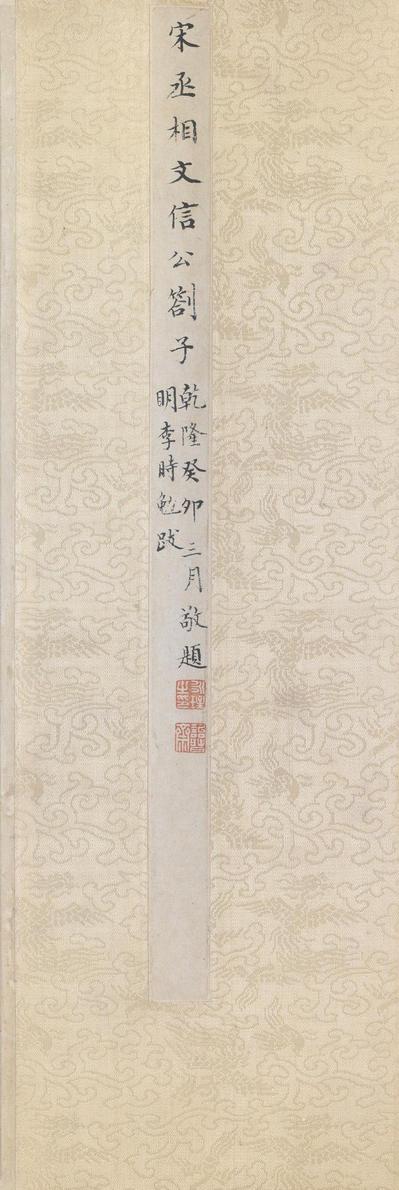 宋丞相文信公劄子
乾隆癸卯三月敬題
明李時勉跋